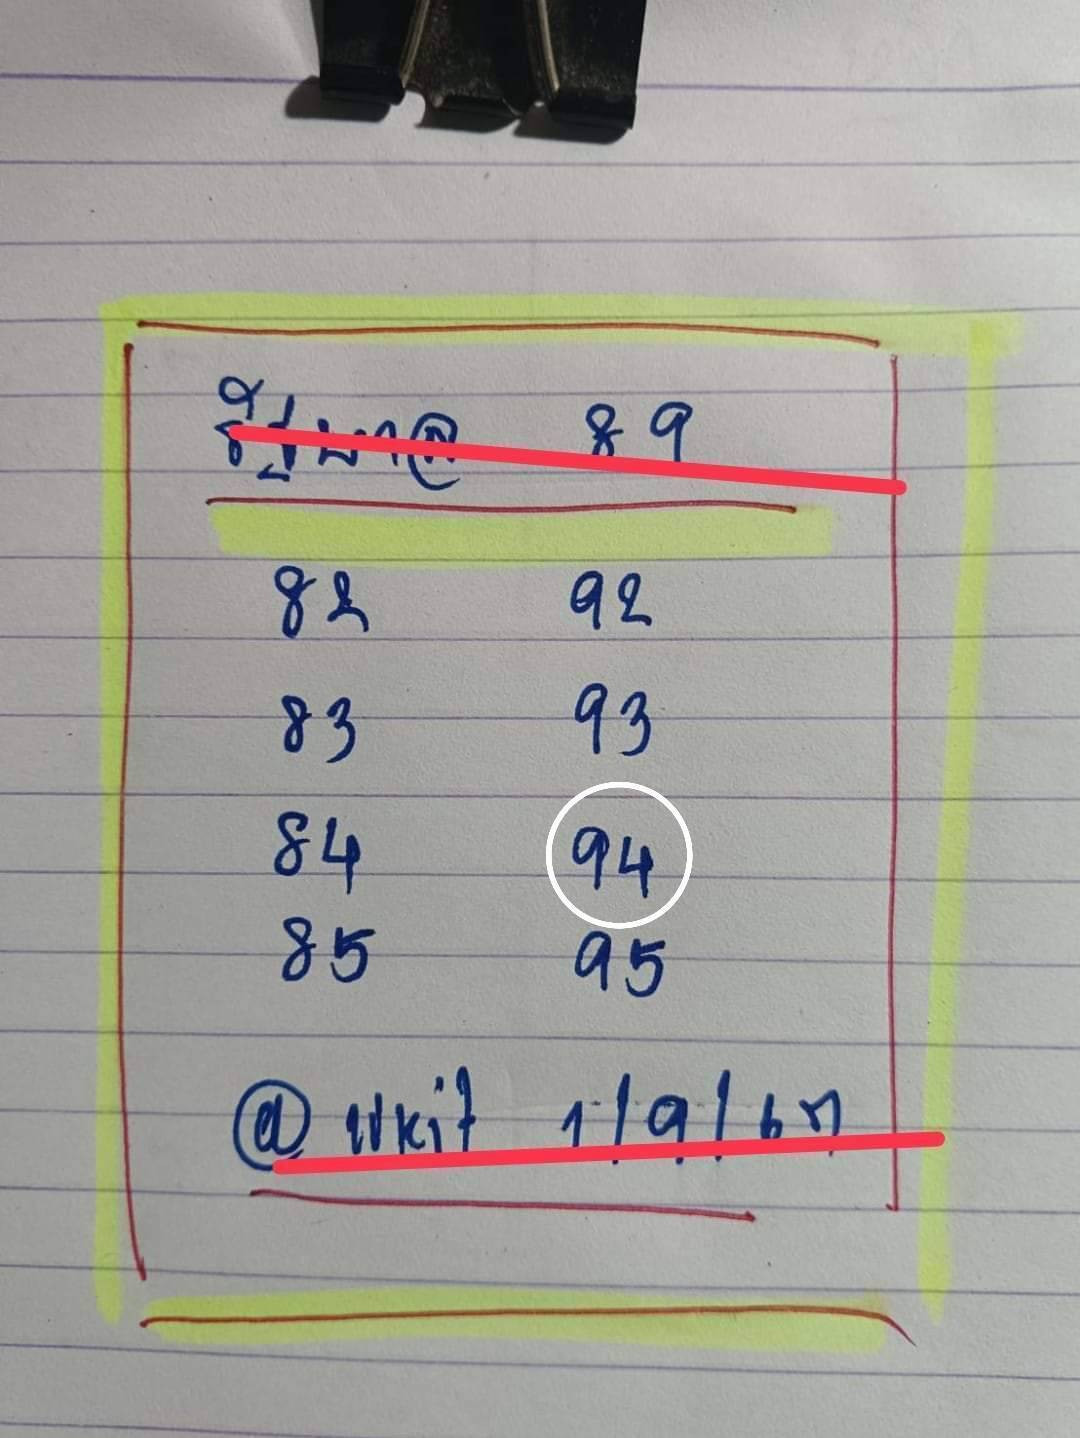 รัฐบาล 89
82 92
83 93
84 94
85 95
1/9/67